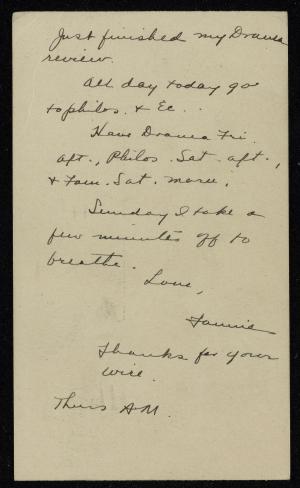 Just finished my Drama
review.
All day today go
to philos. & Ec. .
Have Drama Fri.
aft., Philos. Sat. aft.,
& Fam. Sat. morn.
Sunday I take a
few minutes off to
breathe.
Love,
Fannie
Thanks for your
wire.
Thurs A.M.